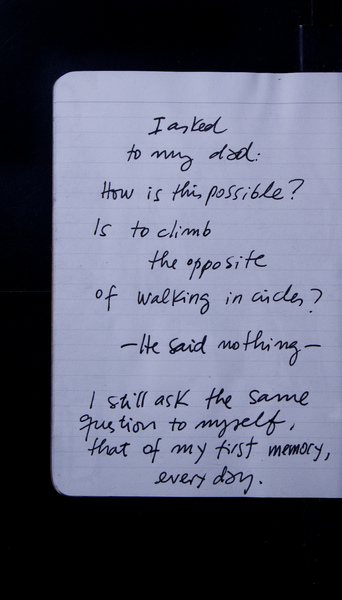 I asked
to my dad:
How is this possible?
Is to climb
the opposite
of walking in circles?
—He said nothing—
I still ask the same
question to myself,
that of my first memory,
every day.